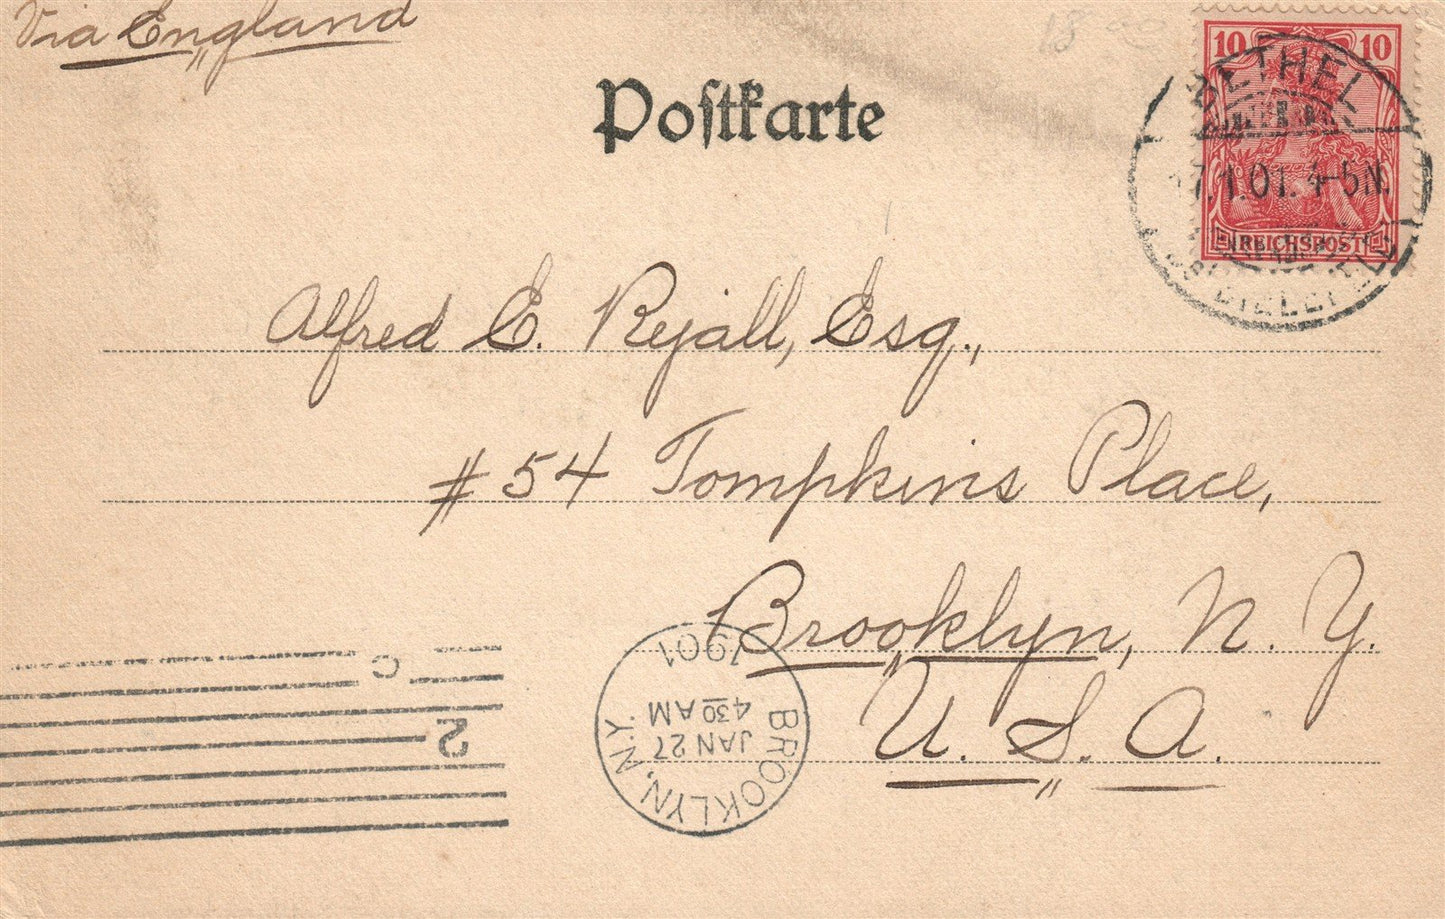 Via England
18
Postkarte
10 10
BETHEL
7.1.01. 4-5N.
REICHSPOST
BIELEFELD
Alfred E. Rejall, Esq.,
# 54 Tompkins Place,
Brooklyn, N. Y.
U. S. A.
BROOKLYN, N.Y.
JAN 27
430 AM
1901
C
2